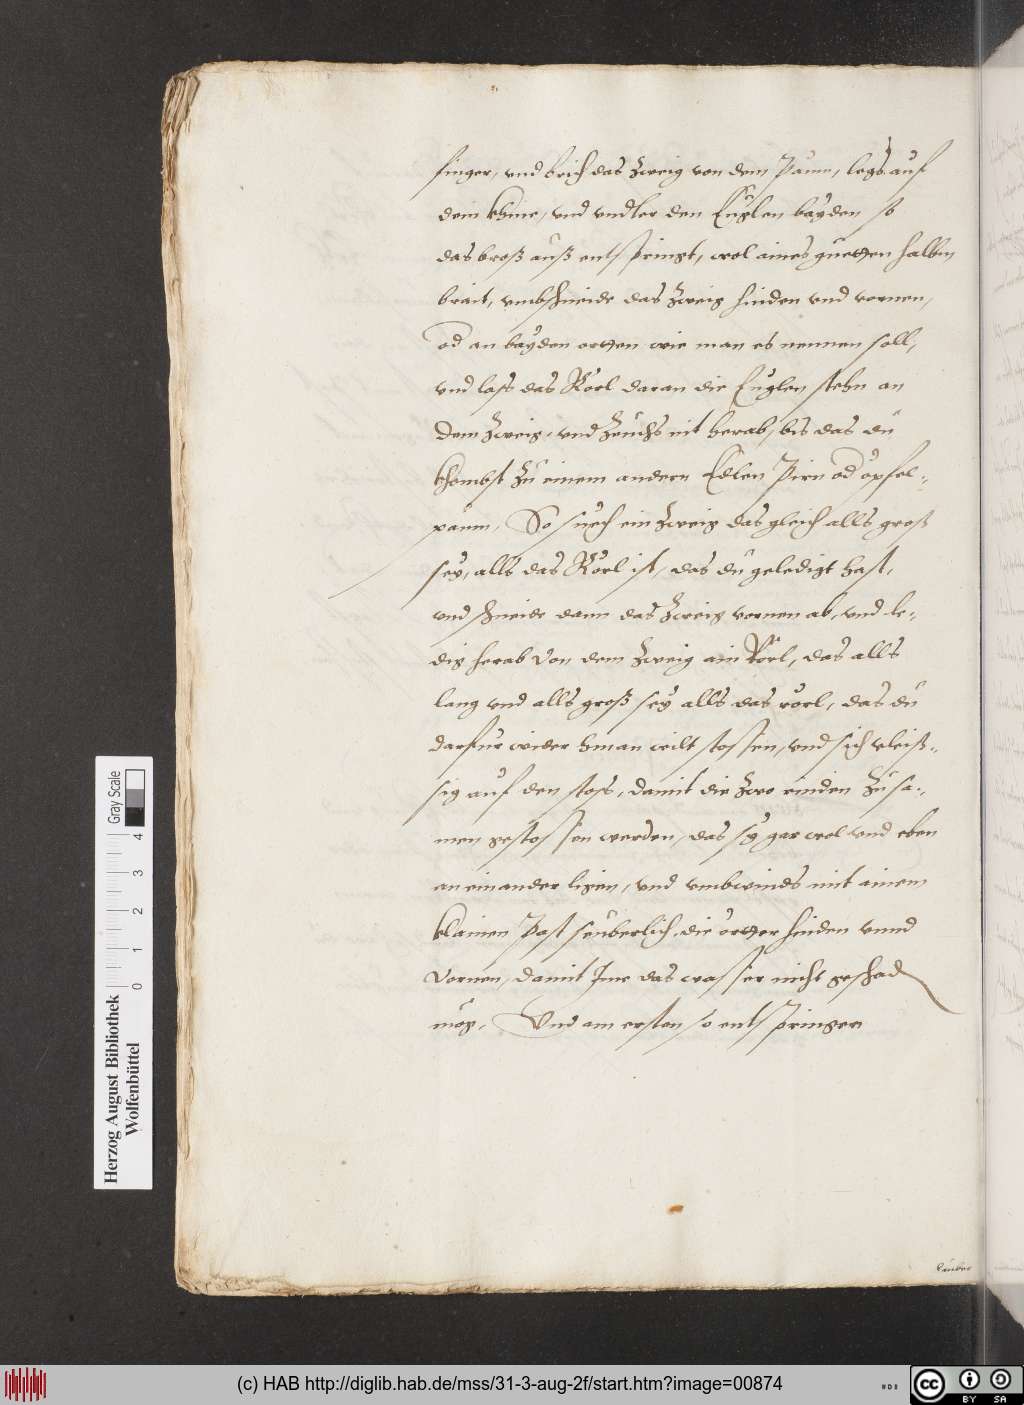 finger, vnd brich das Zweig von dem Paum, legs auf
dein Khnie, vnd vndter den Euglen bayden so
das broß auß entspringt, wol aines guetten halbm
brait, vmbschneide das Zweig hinden vnd vornen,
od an bayden ortten wie man es nennen soll,
vnd lass das Rörl daran die Euglen stehn an
dem Zweig, vnd Zeuchs nit herab, bis das du
khombst Zu einem andern Edlen Pirn od öpfel-
paum, So suech ein Zweig das gleich alls groß
sey, alls das Rörl ist, das du geledigt hast,
vnd schneide dann das Zweig vornen ab, vnd le-
dig herab von dem Zweig ain Rörl, das alls
lang vnd alls groß sey alls das rörl, das du
darfür wider hinan wilt stossen, vnd sich vleiß-
sig auf den stoss, damit die Zwo rinden Zusa-
men gestossen werden, das sy gar wol vnd eben
an einander ligen, vnd vmbwinds mit ainem
klainen Past seuberlich die örtter hinden vnnd
vornen, damit Ime das wasser nicht geschad
mög, Vnd am ersten so entspringen
Herzog August Bibliothek
Wolfenbüttel
0 1 2 3 4
Gray Scale
(c) HAB http://diglib.hab.de/mss/31-3-aug-2f/start.htm?image=00874
cc BY SA